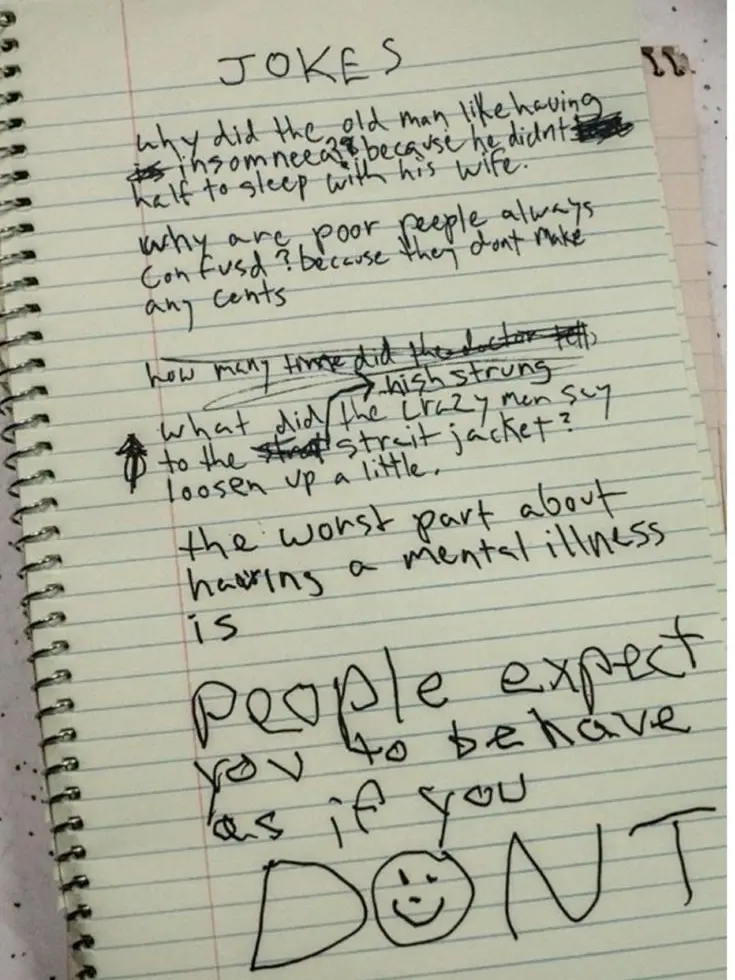 JOKES
why did the old man like having
insomneea?? because he didnt
half to sleep with his wife.
why are poor peeple always
confusd? because they dont make
any cents
how many time did the doctor tell
high strung
what did the crazy man say
to the strait jacket?
loosen up a little.
the worst part about
having a mental illness
is
people expect
you to behave
as if you
DONT